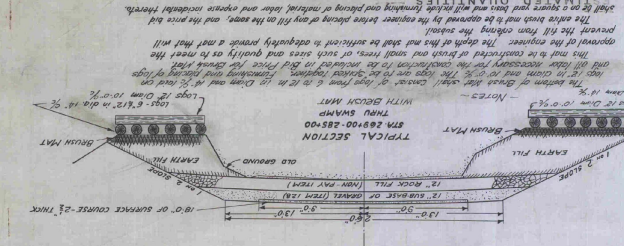 26'0"
13'0" 13'0"
9'0" 9'0"
18'0" OF SURFACE COURSE - 2½" THICK
12" SUB-BASE OF GRAVEL (ITEM 12B)
12" ROCK FILL (NON PAY ITEM)
1 ON 2 SLOPE
1 ON 2 SLOPE
EARTH FILL
EARTH FILL
OLD GROUND
BRUSH MAT
BRUSH MAT
TYPICAL SECTION
STA 269+00-285+00
THRU SWAMP
WITH BRUSH MAT
Logs 12" Diam 10'-0"
Logs - 6"/12" in dia
- NOTES -
The bottom of Brush Mat shall consist of logs from 6 to 12 in. in Diam and
logs 12" in Diam and 10'-0". The logs are to be spiked together. Furnishing and placing of logs
and labor necessary for the construction to be included in Bid Price for Brush Mat
This mat to be constructed of brush and small trees, of such sizes and quality as to meet the
approval of the engineer. The depth of the mat shall be sufficient to adequately provide a mat that will
prevent the fill from entering the subsoil
The entire brush mat to be approved by the engineer before placing of any fill on the same, and the price bid
shall be on a square yard basis and will include furnishing and placing of material, labor and expense incidental thereto.
QUANTITIES